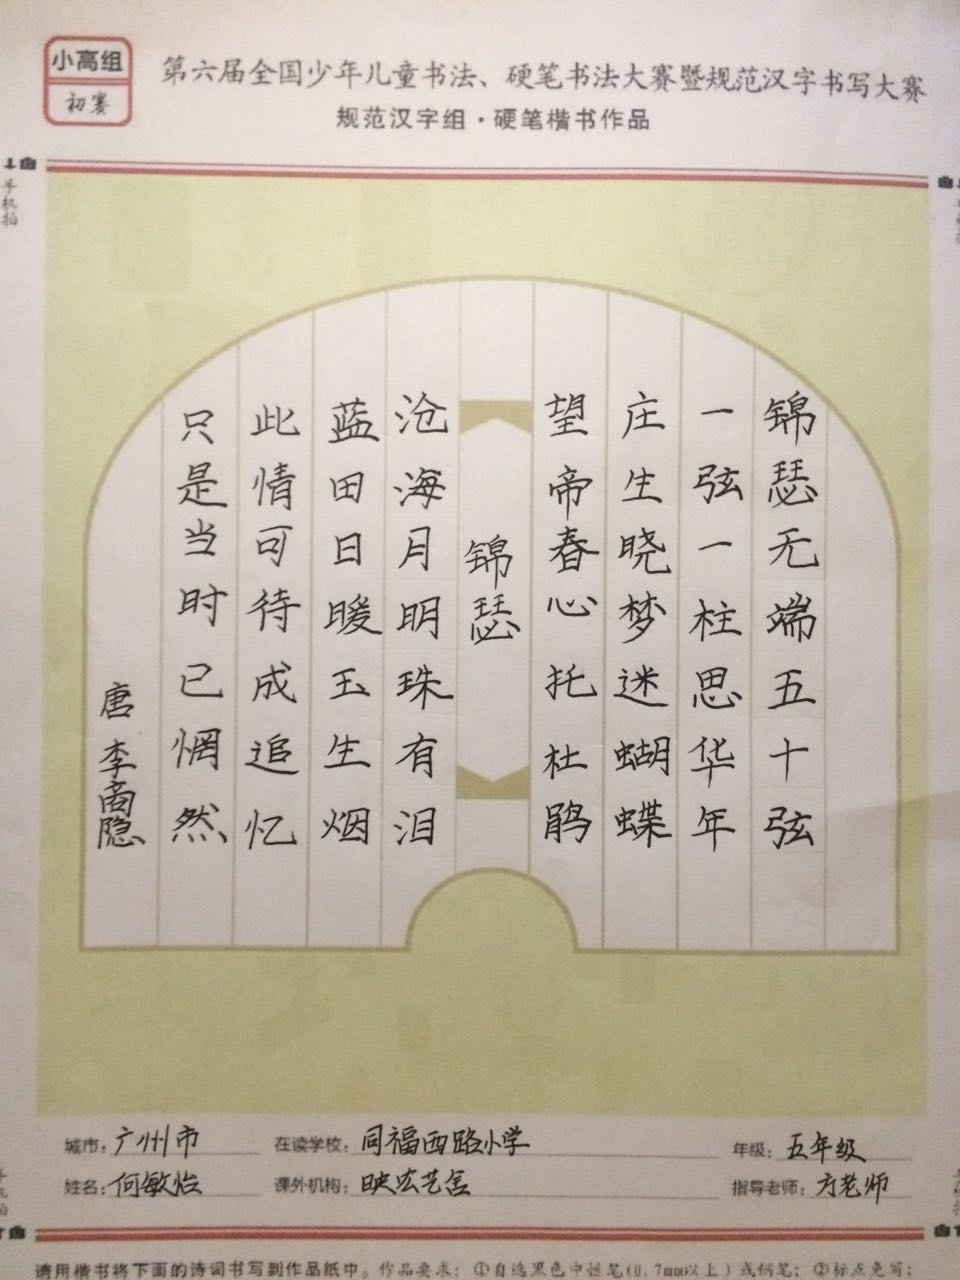 小高组
初赛
第六届全国少年儿童书法、硬笔书法大赛暨规范汉字书写大赛
规范汉字组·硬笔楷书作品
手机拍
锦瑟无端五十弦
一弦一柱思华年
庄生晓梦迷蝴蝶
望帝春心托杜鹃
锦瑟
沧海月明珠有泪
蓝田日暖玉生烟
此情可待成追忆
只是当时已惘然
唐 李商隐
城市：广州市 在读学校：同福西路小学 年级：五年级
姓名：何敏怡 课外机构：映宏艺舍 指导老师：方老师
请用楷书将下面的诗词书写到作品纸中。作品要求：①自选黑色中性笔(0.7mm以上)或钢笔；②标点免写；